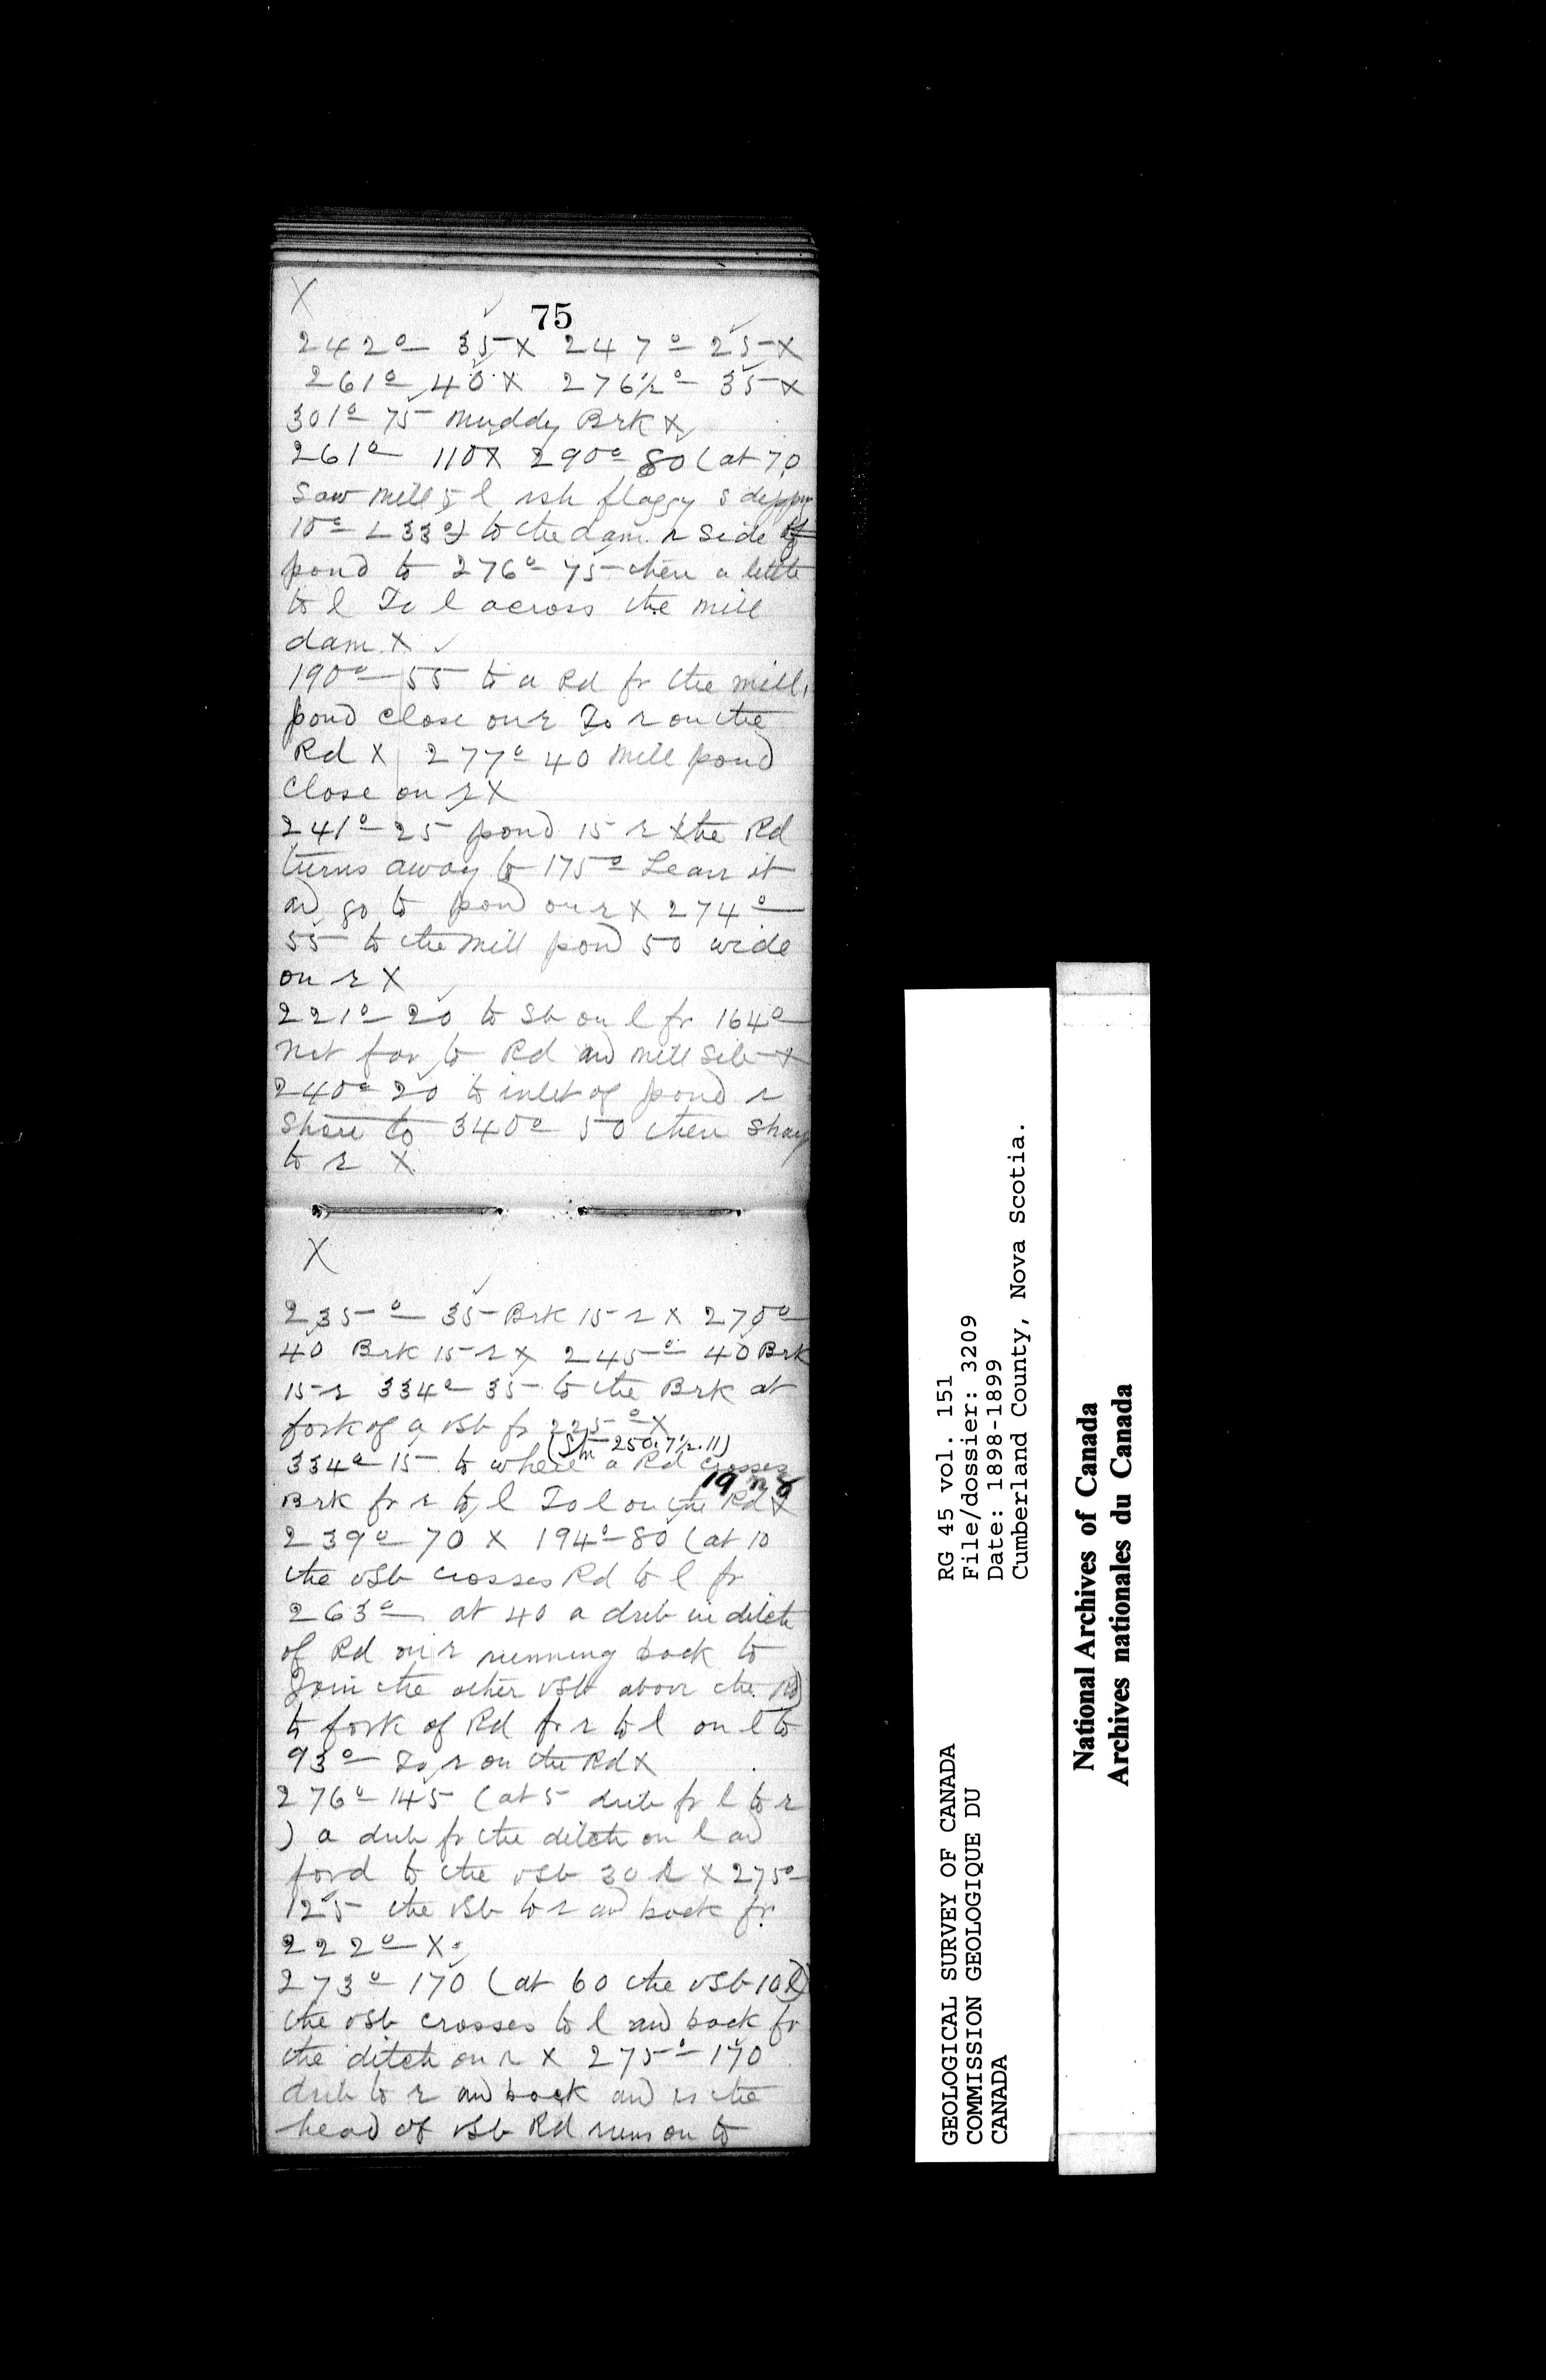 X
75
242° 35 X 247° 25 X
261° 40 X 276½° 35 X
301° 75 Muddy Brk X
261° 110 X 290° 80 (at 70
Saw mill 5 l rsh flaggy s dipping
10° < 33°) to the dam r side of
pond to 276° 75 then a little
to l To l across the mill
dam X
190° 55 to a Rd fr the mill,
pond close on r To r on the
Rd X 277° 40 mill pond
close on r X
241° 25 pond 15 r X the Rd
turns away to 175° Leave it
and go to pond on r X 274°
55 to the mill pond 50 wide
on r X
221° 20 to Sb on l fr 164°
not far to Rd and mill site X
240° 20 to inlet of pond r
Shore to 340° 50 then sharp
to r X
X
235° 35 Brk 15 r X 270°
40 Brk 15 r X 245° 40 Brk
15 r 334° 35 to the Brk at
fork of a vsb fr 225° X
(Sm 250.7½.11)
334° 15 to where a Rd crosses
19
Brk fr r to l To l on the Rd X
239° 70 X 194° 80 (at 10
the vsb crosses Rd to l fr
263° at 40 a drib in ditch
of Rd on r running back to
Join the other vsb above the Rd)
to fork of Rd fr r to l on l to
93° To r on the Rd X
276° 145 (at 5 drib fr l to r
) a drib fr the ditch on l and
ford to the vsb 30 r X 275°
125 the vsb to r and back fr
222° X
273° 170 (at 60 the vsb 10 l)
the vsb crosses to l and back fr
the ditch on r X 275° 170
drib to r and back and is the
head of vsb Rd runs on to
RG 45 vol. 151
File/dossier: 3209
Date: 1898-1899
Cumberland County, Nova Scotia.
GEOLOGICAL SURVEY OF CANADA
COMMISSION GEOLOGIQUE DU
CANADA
National Archives of Canada
Archives nationales du Canada